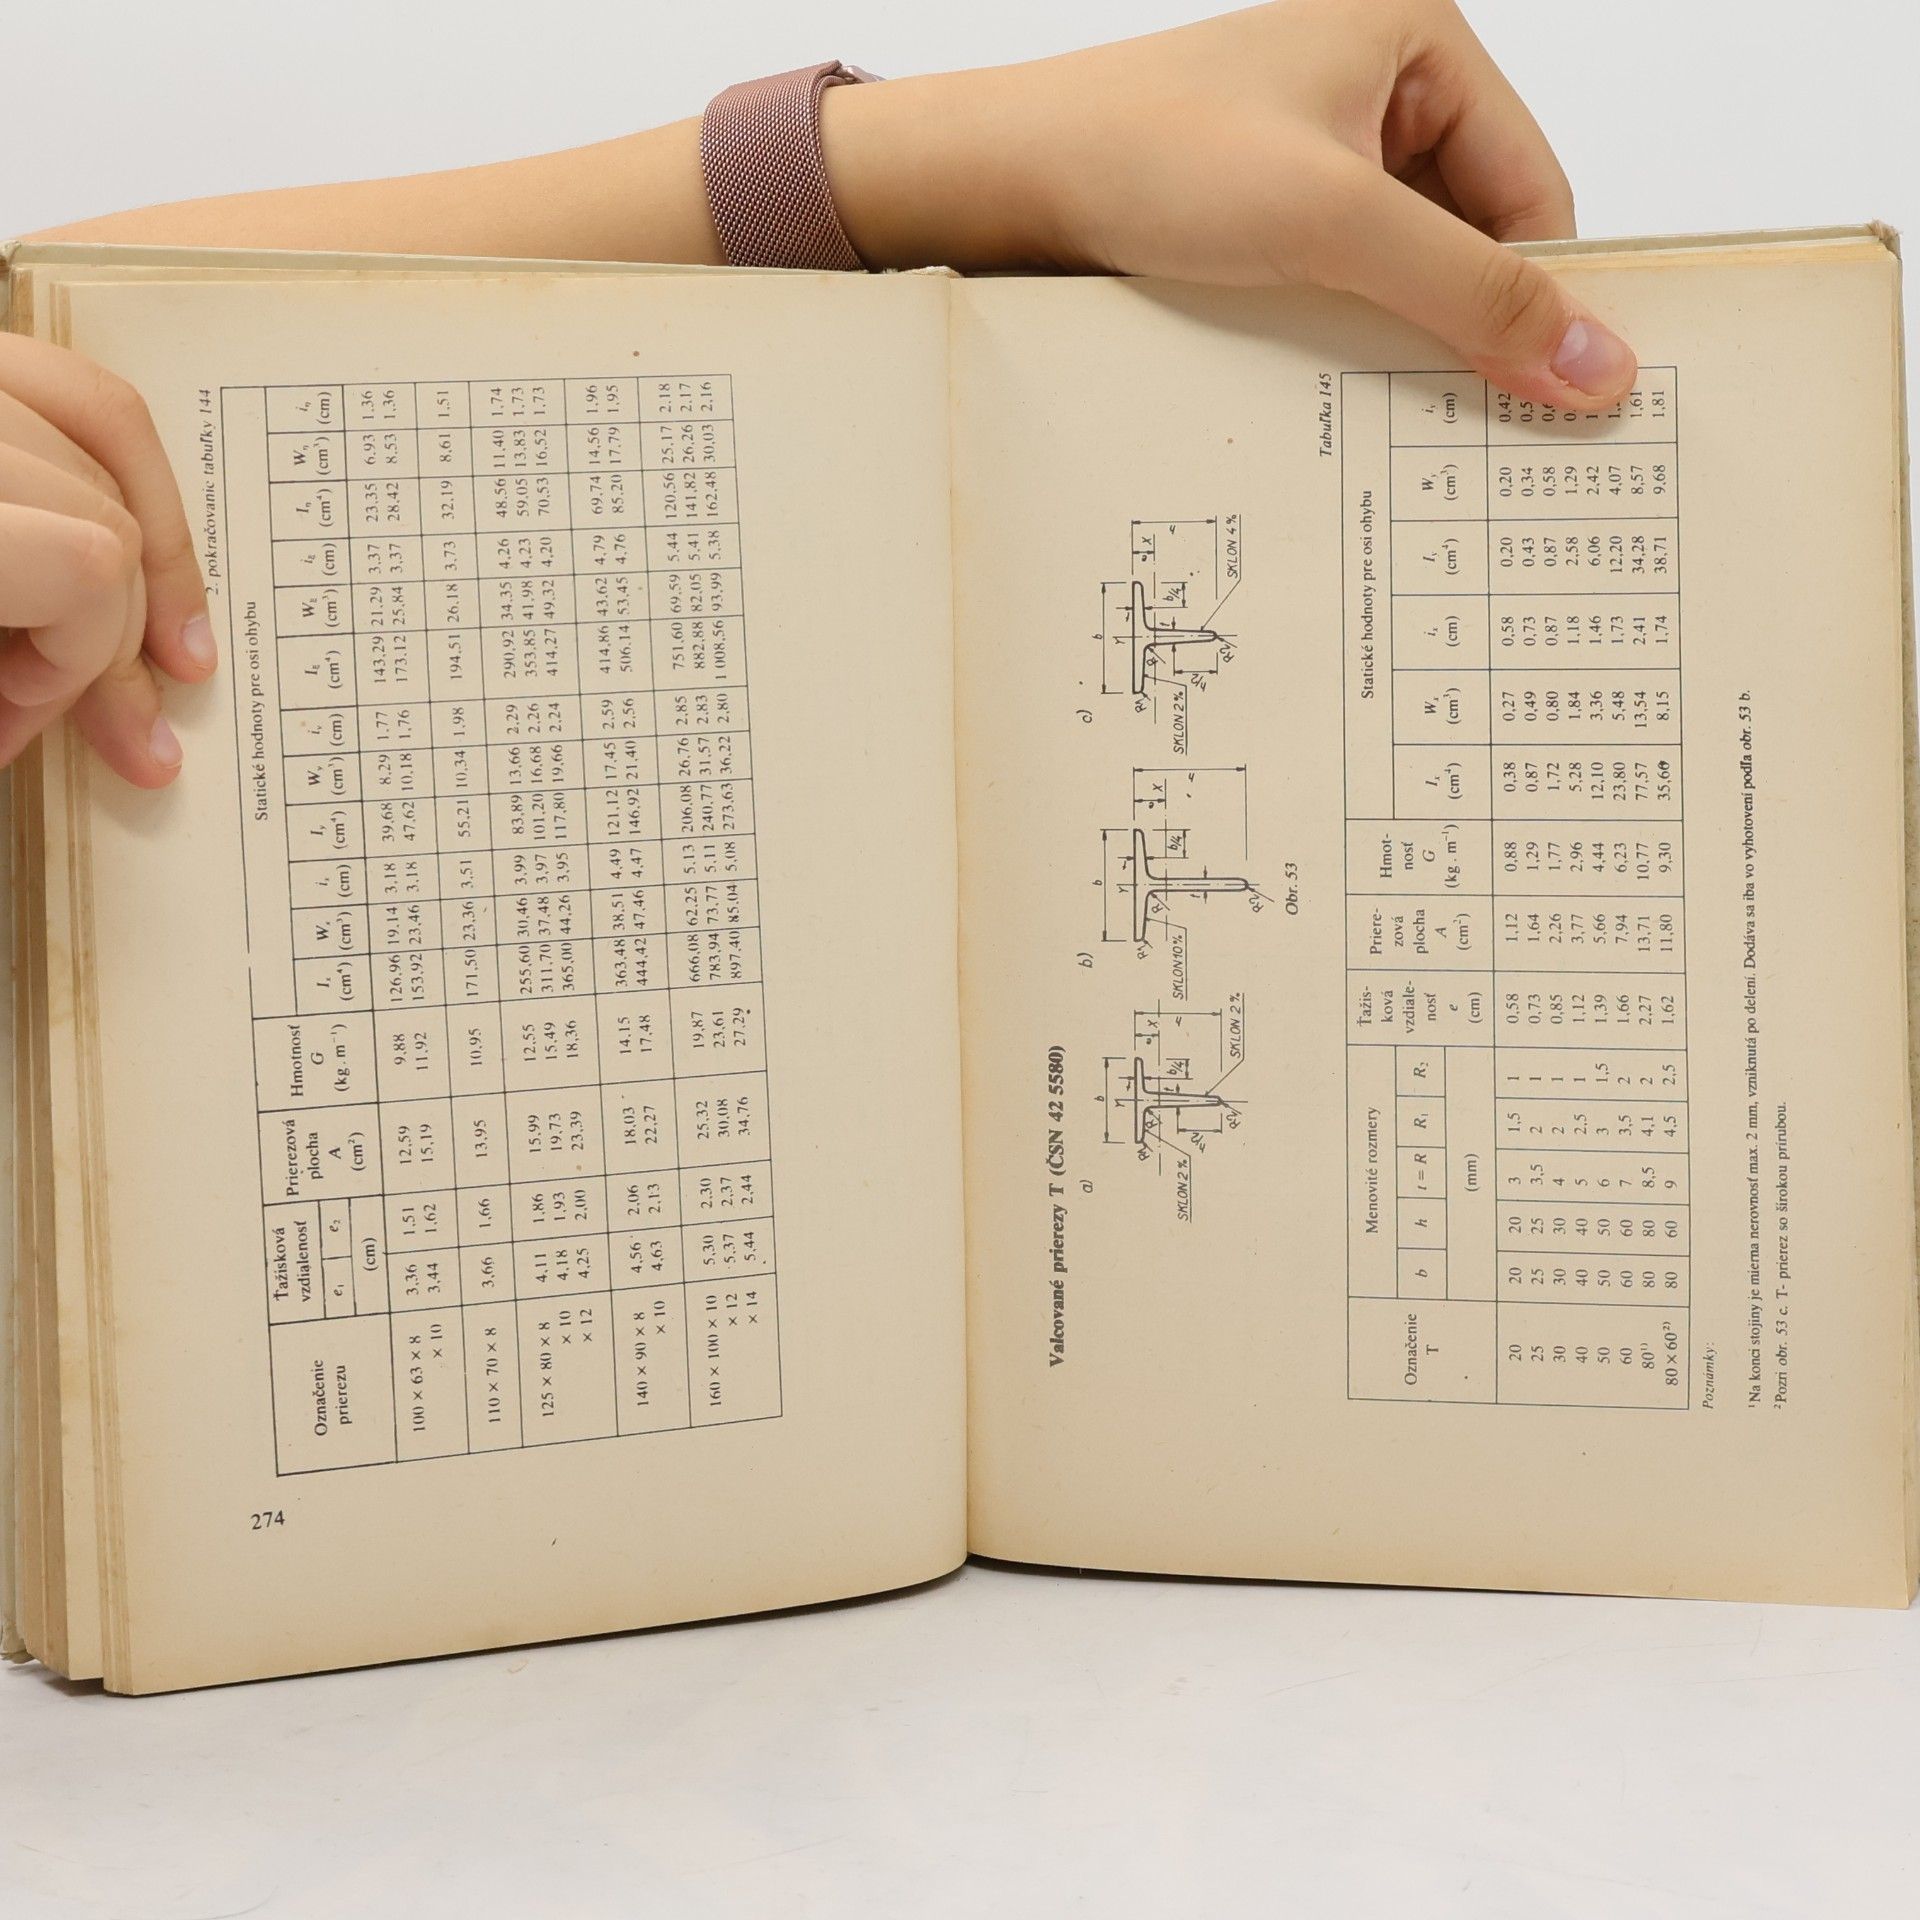 274
2. pokračovanie tabuľky 144
Označenie prierezu | Ťažisková vzdialenosť | Prierezová plocha A (cm²) | Hmotnosť G (kg . m⁻¹) | Statické hodnoty pre osi ohybu
e₁ | e₂ (cm) | Iₓ (cm⁴) | Wₓ (cm³) | iₓ (cm) | Iᵧ (cm⁴) | Wᵧ (cm³) | iᵧ (cm) | I_ξ (cm⁴) | W_ξ (cm³) | i_ξ (cm) | I_η (cm⁴) | W_η (cm³) | i_η (cm)
100 × 63 × 8 | 3,36 | 1,51 | 12,59 | 9,88 | 126,96 | 19,14 | 3,18 | 39,68 | 8,29 | 1,77 | 143,29 | 21,29 | 3,37 | 23,35 | 6,93 | 1,36
× 10 | 3,44 | 1,62 | 15,19 | 11,92 | 153,92 | 23,46 | 3,18 | 47,62 | 10,18 | 1,76 | 173,12 | 25,84 | 3,37 | 28,42 | 8,53 | 1,36
110 × 70 × 8 | 3,66 | 1,66 | 13,95 | 10,95 | 171,50 | 23,36 | 3,51 | 55,21 | 10,34 | 1,98 | 194,51 | 26,18 | 3,73 | 32,19 | 8,61 | 1,51
125 × 80 × 8 | 4,11 | 1,86 | 15,99 | 12,55 | 255,60 | 30,46 | 3,99 | 83,89 | 13,66 | 2,29 | 290,92 | 34,35 | 4,26 | 48,56 | 11,40 | 1,74
× 10 | 4,18 | 1,93 | 19,73 | 15,49 | 311,70 | 37,48 | 3,97 | 101,20 | 16,68 | 2,26 | 353,85 | 41,98 | 4,23 | 59,05 | 13,83 | 1,73
× 12 | 4,25 | 2,00 | 23,39 | 18,36 | 365,00 | 44,26 | 3,95 | 117,80 | 19,66 | 2,24 | 414,27 | 49,32 | 4,20 | 70,53 | 16,52 | 1,73
140 × 90 × 8 | 4,56 | 2,06 | 18,03 | 14,15 | 363,48 | 38,51 | 4,49 | 121,12 | 17,45 | 2,59 | 414,86 | 43,62 | 4,79 | 69,74 | 14,56 | 1,96
× 10 | 4,63 | 2,13 | 22,27 | 17,48 | 444,42 | 47,46 | 4,47 | 146,92 | 21,40 | 2,56 | 506,14 | 53,45 | 4,76 | 85,20 | 17,79 | 1,95
160 × 100 × 10 | 5,30 | 2,30 | 25,32 | 19,87 | 666,08 | 62,25 | 5,13 | 206,08 | 26,76 | 2,85 | 751,60 | 69,59 | 5,44 | 120,56 | 25,17 | 2,18
× 12 | 5,37 | 2,37 | 30,08 | 23,61 | 783,94 | 73,77 | 5,11 | 240,77 | 31,57 | 2,83 | 882,88 | 82,05 | 5,41 | 141,82 | 26,26 | 2,17
× 14 | 5,44 | 2,44 | 34,76 | 27,29 | 897,40 | 85,04 | 5,08 | 273,63 | 36,22 | 2,80 | 1 008,56 | 93,99 | 5,38 | 162,48 | 30,03 | 2,16
Valcované prierezy T (ČSN 42 5580)
a) b) c)
SKLON 2% SKLON 2% SKLON 10% SKLON 2% SKLON 4%
Obr. 53
Tabuľka 145
Označenie T | Menovité rozmery | Ťažisková vzdialenosť e (cm) | Prierezová plocha A (cm²) | Hmotnosť G (kg . m⁻¹) | Statické hodnoty pre osi ohybu
b | h | t = R | R₁ | R₂ (mm) | Iₓ (cm⁴) | Wₓ (cm³) | iₓ (cm) | Iᵧ (cm⁴) | Wᵧ (cm³) | iᵧ (cm)
20 | 20 | 20 | 3 | 1,5 | 1 | 0,58 | 1,12 | 0,88 | 0,38 | 0,27 | 0,58 | 0,20 | 0,20 | 0,42
25 | 25 | 25 | 3,5 | 2 | 1 | 0,73 | 1,64 | 1,29 | 0,87 | 0,49 | 0,73 | 0,43 | 0,34
30 | 30 | 30 | 4 | 2 | 1 | 0,85 | 2,26 | 1,77 | 1,72 | 0,80 | 0,87 | 0,87 | 0,58
40 | 40 | 40 | 5 | 2,5 | 1 | 1,12 | 3,77 | 2,96 | 5,28 | 1,84 | 1,18 | 2,58 | 1,29
50 | 50 | 50 | 6 | 3 | 1,5 | 1,39 | 5,66 | 4,44 | 12,10 | 3,36 | 1,46 | 6,06 | 2,42
60 | 60 | 60 | 7 | 3,5 | 2 | 1,66 | 7,94 | 6,23 | 23,80 | 5,48 | 1,73 | 12,20 | 4,07
80¹⁾ | 80 | 80 | 8,5 | 4,1 | 2 | 2,27 | 13,71 | 10,77 | 77,57 | 13,54 | 2,41 | 34,28 | 8,57 | 1,61
80 × 60²⁾ | 80 | 60 | 9 | 4,5 | 2,5 | 1,62 | 11,80 | 9,30 | 35,60 | 8,15 | 1,74 | 38,71 | 9,68 | 1,81
Poznámky:
¹ Na konci stojiny je mierna nerovnosť max. 2 mm, vzniknutá po delení. Dodáva sa iba vo vyhotovení podľa obr. 53 b.
² Pozri obr. 53 c. T- prierez so širokou prírubou.